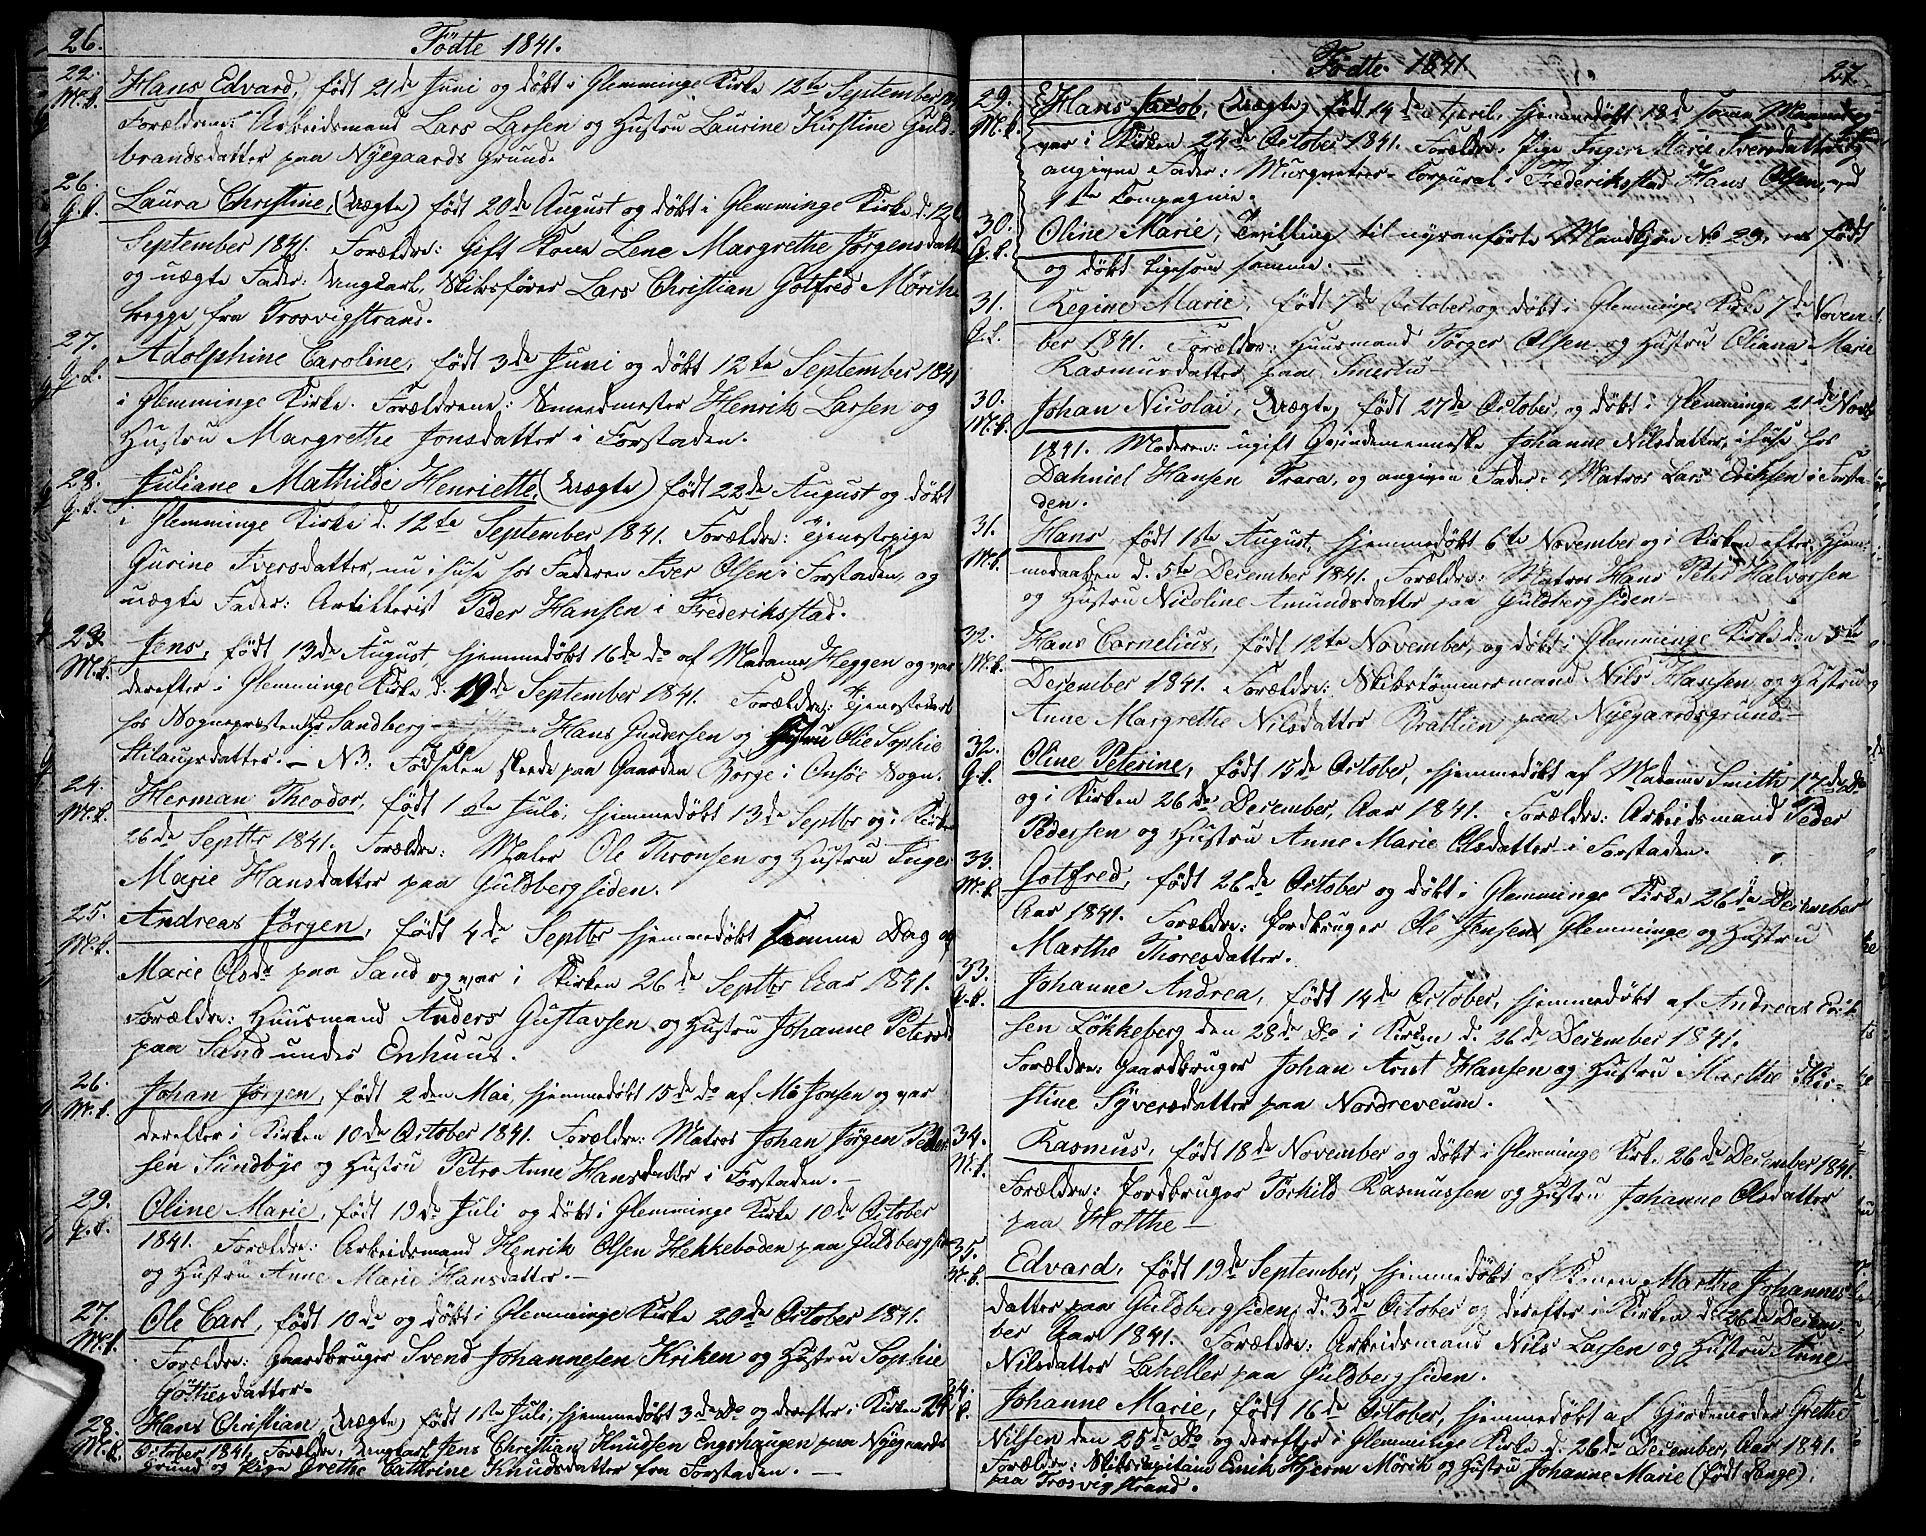 26.
Födte 1841.
22. M.k. Hans Edvard, født 21de Juni og døbt i Glemminge Kirke 12te September
Forældrene: Arbeidsmand Lars Larsen og Hustru Laurine Kirstine Guld-
brandsdatter paa Nyegaards Grund.
26. Q.k. Laura Christine, (Uægte) født 20de August og døbt i Glemminge Kirke d. 12te
September 1841. Forældre: Gift Kone Lene Margrethe Jörgensdatter
og uægte Fader: Ungkarl, Skibsfører Lars Christian Gotfred Mörch
begge fra Trosvigstrand.
27. Q.k. Adolphine Caroline, født 3de Juni og døbt 12te September 1841
i Glemminge Kirke. Forældrene: Smeedmester Henrik Larsen og
Hustru Margrethe Jonsdatter i Forstaden.
28. Q.k. Juliane Mathilde Henriette, (Uægte) født 22de August og døbt
i Glemminge Kirke d. 12te September 1841. Forældre: Tjenestepige
Gurine Iversdatter, nu i huse hos Faderen Iver Olsen i Forstaden, og
uægte Fader: Artillerist Peder Hansen i Frederiksstad.
23. M.k. Jens, født 13de August, hjemmedøbt 16de do af Madame Heggen og var
derefter i Glemminge Kirke d. 19de September 1841. Forældre: Tjenestekarl
hos Sognepræsten Hr Sandberg Hans Gundersen og Hustru Olie Sophie
Stilaugsdatter. — NB: Fødselen skeede paa Gaarden Borge i Onsöe Sogn.
24. M.k. Herman Theodor, født 1ste Juli, hjemmedøbt 13de Septbr og i Kirken
26de Septbr 1841. Forældre: Maler Ole Thronsen og Hustru Inger
Marie Hansdatter paa Guldbergsiden.
25. M.k. Andreas Jörgen, født 4de Septbr hjemmedøbt samme Dag af
Marie Olsdr paa Sand og var i Kirken 26de Septbr Aar 1841.
Forældre: Huusmand Anders Gustavsen og Hustru Johanne Petersd.
paa Sand under Enhuus.
26. M.k. Johan Jörgen, født 2den Mai, hjemmedøbt 15de do af Md Jonsen og var
derefter i Kirken 10de October 1841. Forældre: Matros Johan Jörgen Peder-
sen Sundbye og Hustru Petro Anne Hansdatter i Forstaden. —
29. Q.k. Oline Marie, født 19de Juli og døbt i Glemminge Kirke 10de October
1841. Forældre: Arbeidsmand Henrik Olsen Hekkeboden paa Guldbergsiden
og Hustru Anne Marie Hansdatter. —
27. M.k. Ole Carl, født 10de og døbt i Glemminge Kirke 20de October 1841.
Forældre: Gaardbruger Svend Johannesen Kriken og Hustru Sophie
Göthesdatter.
28. M.k. Hans Christian, (Uægte) født 1ste Juli, hjemmedøbt 3de do og derefter i Kirken 24de
October 1841. Forældre: Ungkarl Jens Christian Knudsen Engshaugen paa Nyegaards
Grund og Pige Grethe Cathrine Knudsdatter fra Forstaden. —
Födte 1841.
27.
29. M.k. Hans Jacob, (Uægte) født 14de April, hjemmedøbt 18de samme Maaned og
var i Kirken 24de October 1841. Forældre: Pige Inger Marie Iversdatter og
angivne Fader: Musqueteer-Corporal i Frederiksstad Hans Olsen, ved
1ste Kompagnie.
30. Q.k. Oline Marie, Tvilling til nysanførte Mandkjøn No 29, er født
og døbt ligesom samme. —
31. Q.k. Regine Marie, født 7de October, og døbt i Glemminge Kirke 7de Novem-
ber 1841. Forældre: Huusmand Törger Olsen og Hustru Oliana Marie
Rasmusdatter paa Smertu —
30. M.k. Johan Nicolai, (Uægte) født 27de October, og døbt i Glemminge 21de Novbr
1841. Moderen: ugift Qvindemenneske Johanne Nilsdatter, i huse hos
Dahniel Hansen Trara, og angiven Fader: Matros Lars Erichsen i Forsta-
den.
31. M.k. Hans, født 1ste August, hjemmedøbt 6te November og i Kirken efter Hjem-
medaaben d. 5te December 1841. Forældre: Matros Hans Peter Halvorsen
og Hustru Nicoline Amundsdatter paa Guldbergsiden —
32. M.k. Hans Cornelius, født 12te November, og døbt i Glemminge Kirke den 5te
December 1841. Forældre: Skibstömmermand Nils Hansen og Hustru
Anne Margrethe Nilsdatter Bratlien paa Nyegaardsgrund. —
32. Q.k. Oline Peterine, født 15de October, hjemmedøbt af Madame Smith 17de do
og i Kirken 26de December, Aar 1841. Forældre: Arbeidsmand Peder
Pedersen og Hustru Anne Marie Olsdatter i Forstaden.
33. M.k. Gotfred, født 26de October og døbt i Glemminge Kirke 26de December
Aar 1841. Forældre: Jordbruger Ole Jensen Glemminge og Hustru
Marthe Thoresdatter.
33. Q.k. Johanne Andrea, født 14de October, hjemmedøbt af Andreas Erik-
sen Løkkeberg den 28de do i Kirken d. 26de December 1841.
Forældre: Gaardbruger Johan Arnt Hansen og Hustru Marthe Kir-
stine Syversdatter paa Nordreveum.
34. M.k. Rasmus, født 18de November og døbt i Glemminge Kirke 26de December 1841.
Forældre: Jordbruger Torkild Rasmussen og Hustru Johanne Olsdatter
paa Holthe —
35. M.k. Edvard, født 19de September, hjemmedøbt af Konen Marthe Johannes-
datter paa Guldbergsiden, d. 3de October og derefter i Kirken d. 26de Decem-
ber Aar 1841. Forældre: Arbeidsmand Nils Larsen og Hustru Anne
Nilsdatter Laheller paa Guldbergsiden.
34. Q.k. Johanne Marie, født 16de October, hjemmedøbt af Gjordmoder Grethe
Nilsen den 25de do og derefter i Glemminge Kirke d. 26de December, Aar 1841.
Forældre: Skibscapitain Erik Hjerm Mörch og Hustru Johanne Marie (født Lange),
paa Trosvigstrand.